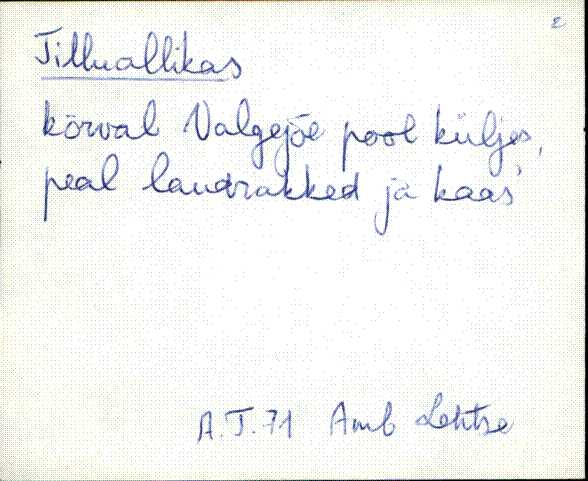 2
Tilluallikas
kõrval Valgejõe pool küljes,
peal laudrakked ja kaas
A.T.71 Amb Lehtse